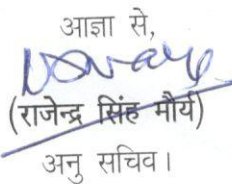 आज्ञा से,
(राजेन्द्र सिंह मौर्य)
अनु सचिव।